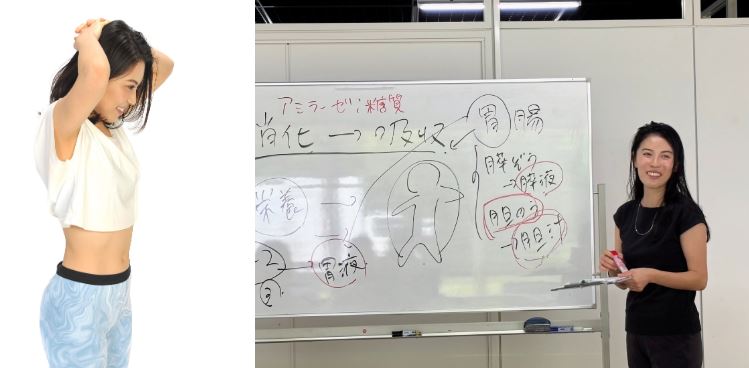 アミラーゼ:糖質
消化→吸収
胃 腸
膵ぞう
→膵液
胆のう
→胆汁
栄養→
胃液